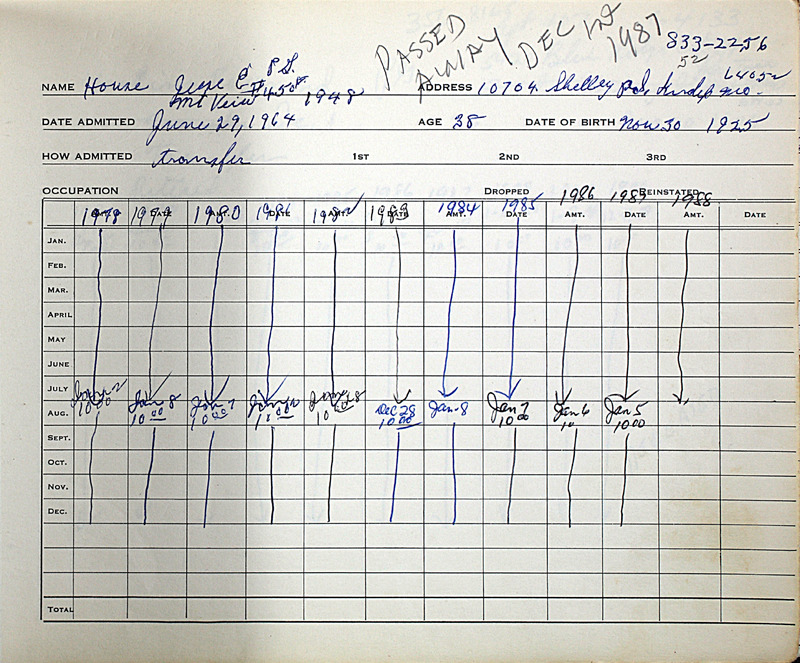 PASSED AWAY DEC 1st 1987
833-2256
52
NAME House Jesse E. P.S. ADDRESS 10704 Shelley Rd. Indep Mo. 64052
Mt View #450 1948
DATE ADMITTED June 29, 1964 AGE 38 DATE OF BIRTH Nov 30 1925
HOW ADMITTED transfer 1ST 2ND 3RD
OCCUPATION DROPPED REINSTATED
1978 1979 1980 1981 1982 1983 1984 1985 1986 1987 1988
AMT. DATE AMT. DATE AMT. DATE AMT. DATE AMT. DATE AMT. DATE
JAN.
FEB.
MAR.
APRIL
MAY
JUNE
JULY
AUG. Jan 2 10.00 Jan 8 10 00 Jan 7 10 00 Jan 10 00 Jan 8 10 00 Dec 28 10 00 Jan-8 Jan 7 10 00 Jan 6 10 Jan 5 10 00
SEPT.
OCT.
NOV.
DEC.
TOTAL